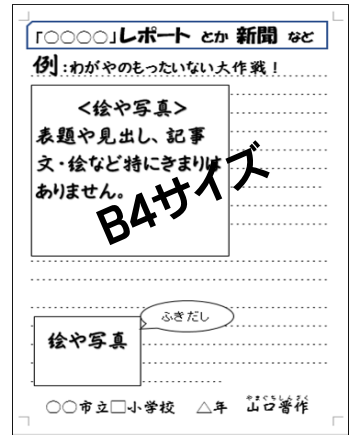 「○○○○」レポート とか 新聞 など
例:わがやのもったいない大作戦！
<絵や写真>
表題や見出し、記事
文・絵など特にきまりは
ありません。
B4サイズ
ふきだし
絵や写真
○○市立□小学校 △年 山口晋作
やまぐちしんさく